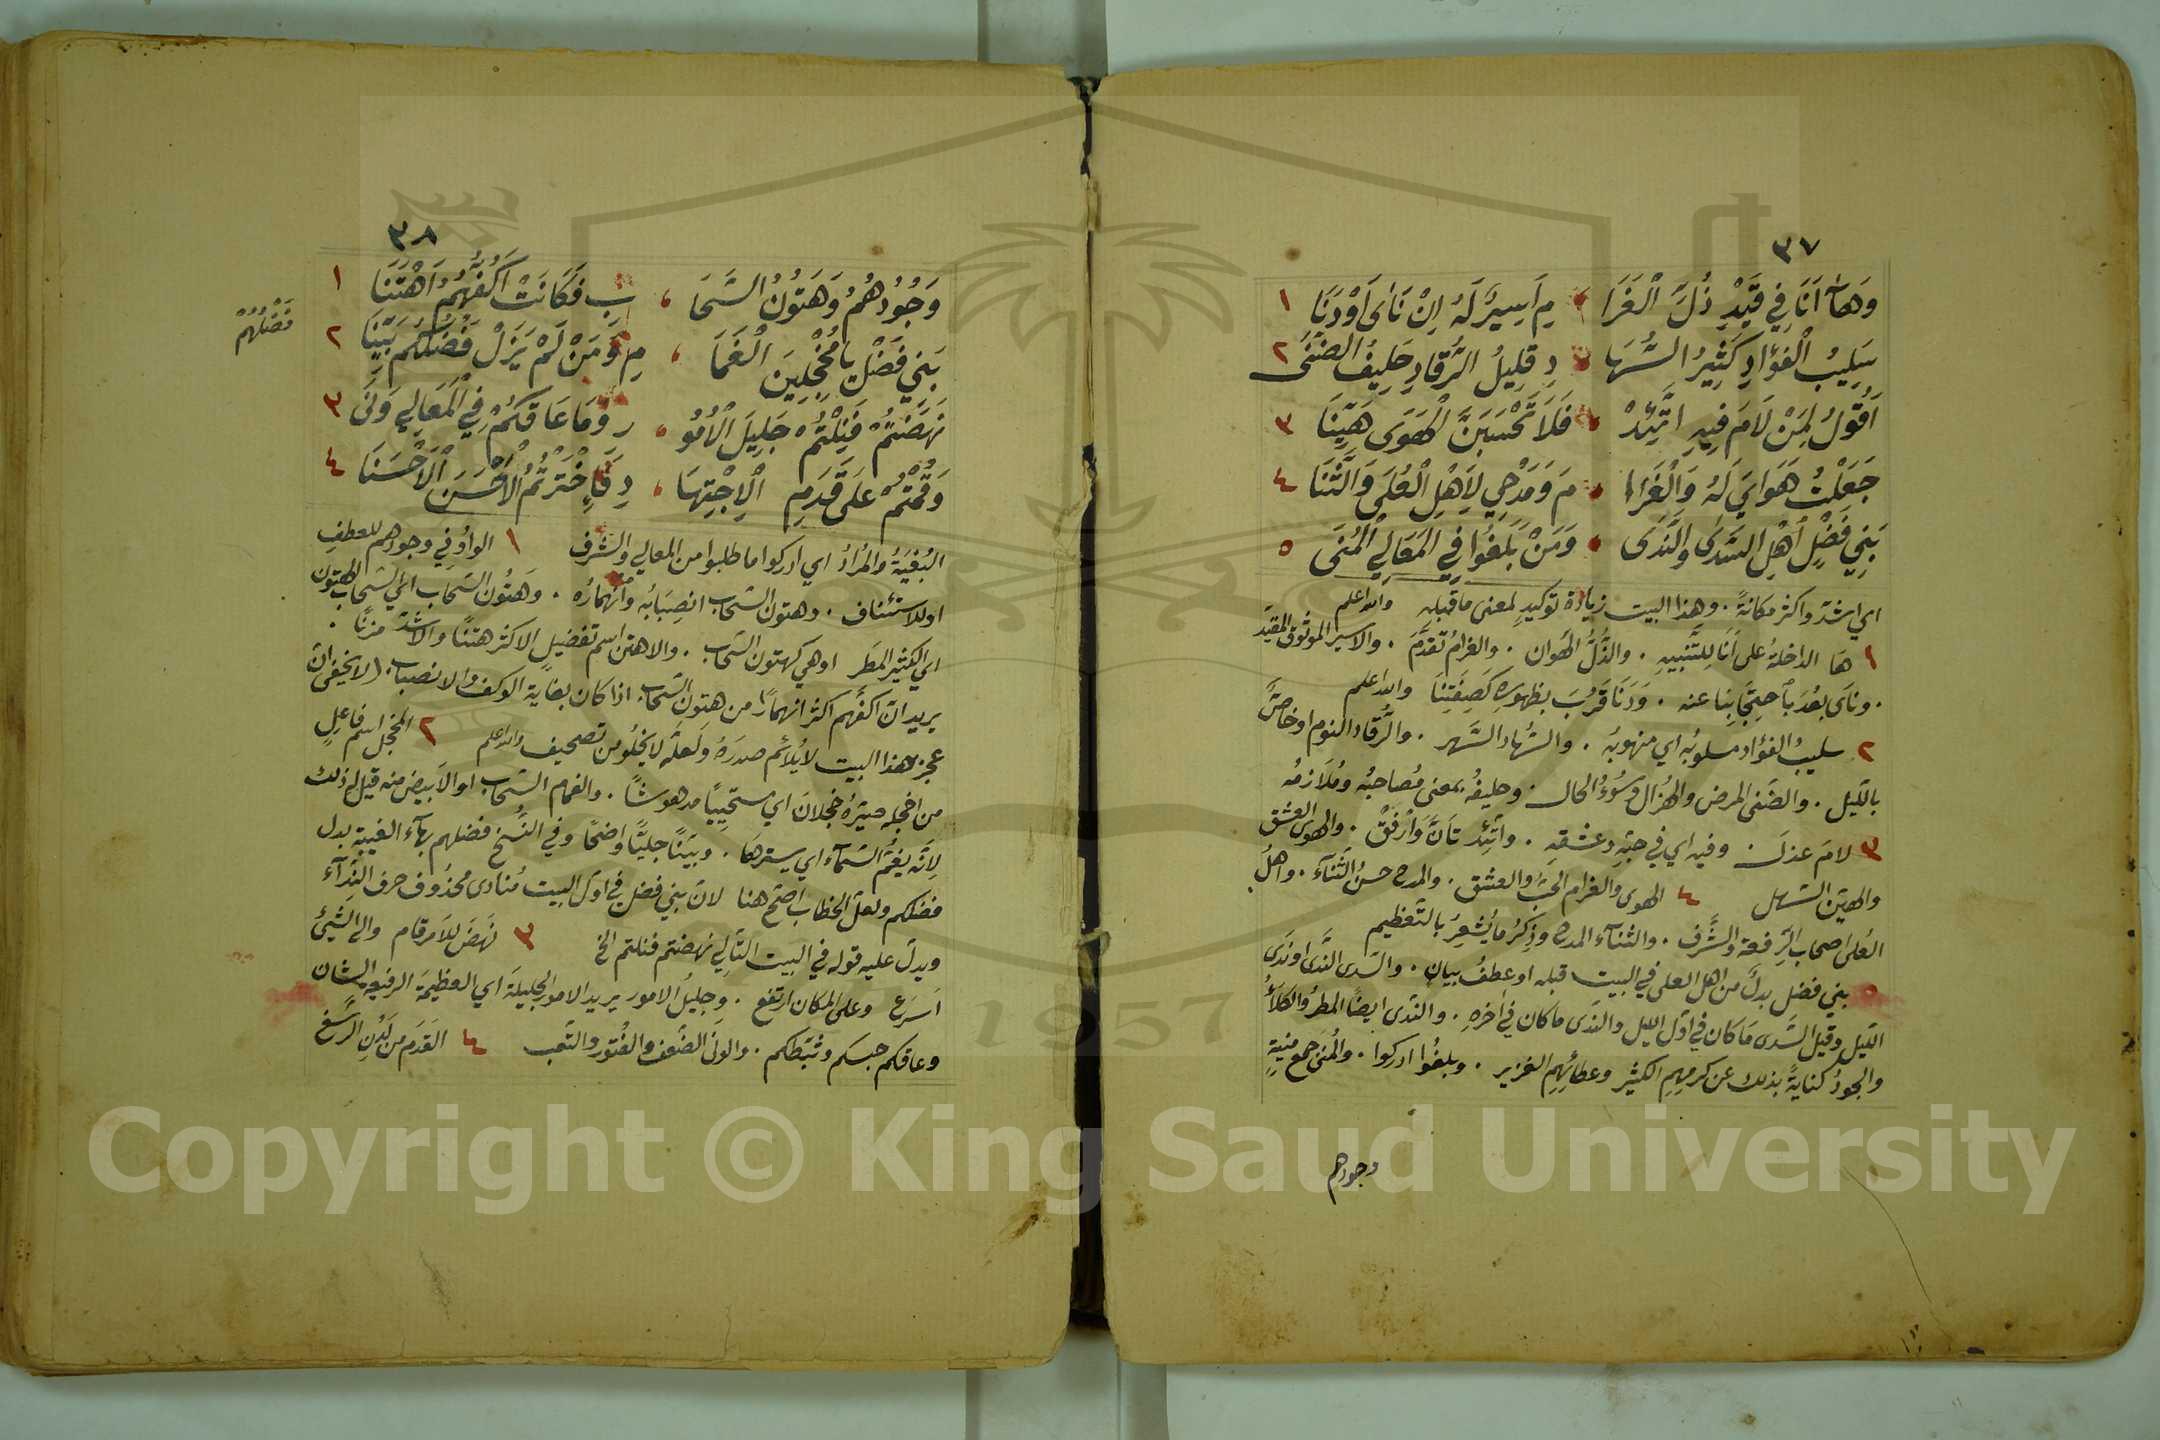 ٣٧
وَهَا أَنَا فِي قَيْدِ ذُلِّ الْغَرَا مِ أَسِيرٌ لَهُ إِنْ نَأَى أَوْ دَنَا ١
سَلِيبُ الْفُؤَادِ كَثِيرُ السُّهَا دِ قَلِيلُ الرُّقَادِ حَلِيفُ الضَّنَى ٢
أَقُولُ لِمَنْ لَامَ فِيهِ اتَّئِدْ فَلَا تَحْسَبَنَّ الْهَوَى هَيِّنَا ٣
جَعَلْتُ هَوَايَ لَهُ وَالْغَرَا مَ وَمَدْحِي لِأَهْلِ الْعُلَى وَالثَّنَا ٤
بَنِي فَضْلٍ أَهْلِ السَّدَى وَالنَّدَى وَمَنْ بَلَغُوا فِي الْمَعَالِي الْمُنَى ٥
اي اشد واكثر مكانةً . وهذا البيت زيادة توكيدٍ لمعنى ما قبله والله اعلم
١ ها الداخلة على أنا للتنبيه . والذُّلُّ الهوان . والغرامُ تقدَّمَ . والاسير الموثوق المقيَّد
. ونأى بعُدَ باحتجابنا عنه . ودنا قرُبَ بظهوره كصفتنا والله اعلم
٢ سليبُ الفؤاد مسلوبُه اي منهوبُه . والسُّهاد السَّهر . والرُّقاد النوم او خاصٌّ
بالليل . والضنى المرض والهُزال وسُوءُ الحال . وحليفُه بمعنى مُصاحبُه ومُلازمُه
٣ لامَ عذلَ . وفيه اي في حبّهِ وعشقهِ . واتَّئِد تأنَّ وَارفُقْ . والهوى العشق
والهيّن السَّهل ٤ الهوى والغرام الحبّ والعشق . والمدح حسنُ الثناء . واهلُ
العُلى اصحاب الرّفعة والشَّرف . والثناء المدح وذكرُ ما يُشعِرُ بالتَّعظيم
٥ بني فضل بدلٌ من اهل العلى في البيت قبله او عطفُ بيانٍ . والسَّدى النَّدى او نَدَى
الليل وقيل السَّدى ما كان في اول الليل والندى ما كان في آخره . والنَّدى ايضًا المطرُ والكلأُ
والجودُ كنايةً بذلك عن كرمِهِم الكثير وعطائِهِم الغزير . وبلغُوا ادركوا . والمُنى جمع منيةٍ
وجودهم
٣٨
وَجُودُهُمُ وَهَتُونُ السَّحَا بِ فَكَانَتْ أَكُفُّهُمُ أَهْتَنَا ١
بَنِي فَضْلٍ يَا مُخْجِلِينَ الْغَمَا مِ وَمَنْ لَمْ يَزَلْ فَضْلُكُمْ بَيِّنَا ٢
فَضْلُهُمْ
نَهَضْتُمْ فَنِلْتُمْ جَلِيلَ الْأُمُو رِ وَمَا عَاقَكُمْ فِي الْمَعَالِي وَنَى ٣
وَقُمْتُمْ عَلَى قَدَمِ الِاجْتِهَا دِ فَاخْتَرْتُمُ الْأَحْسَنَ الْأَحْسَنَا ٤
البُغيَةُ والمُرادُ اي ادركوا ما طلبوا من المعالي والشرف ١ الواوُ في وجودهم للعطف
او للاستئناف . وهتون السَّحاب انصِبَابُه وانهمارُه . وهَتُون السَّحاب اي السَّحاب الهتون
اي الكثير المطَر او هي كهتون السَّحاب . والاهتن اسم تفضيلٍ الاكثر هتنًا والاشدّ مزنًا .
يريد انَّ اكفّهم اكثر انهمارًا من هتون السَّحاب اذا كان بغاية الوكف والانصباب. (لا يخفى ان
عجز هذا البيت لا يُلائم صدرَهُ ولعلَّه لا يخلُو من تصحيف والله اعلم ٢ المخجل اسم فاعلٍ
من اخجله صيّرهُ خجلان اي مستحييًا مدهوشًا . والغمام السَّحاب او الأبيض منه قيل له ذلك
لأنّه يَغُمُّ السَّماء اي يسترها . وبيّنًا جليًّا واضحًا وفي النُّسخ فضلهم بهاء الغيبة بدل
فضلكم ولعل الخطاب اصَحّ هنا لانّ بني فضل في اول البيت مُنادى محذُوف حرف النداء
ويدلّ عليه قوله في البيت التَّالي نهضتم فنلتم الخ ٣ نَهَضَ للأمر قام والى الشيئ
اسرَع وعلى المكان ارتفع . وجليلُ الامور يريد الامور الجليلة اي العظيمَة الرفيعة الشان
وعاقكم حبسكم وثبَّطكم . والونَى الضَّعف والفُتور والتَّعب ٤ القدَم من لَدُنِ الرُّسغ